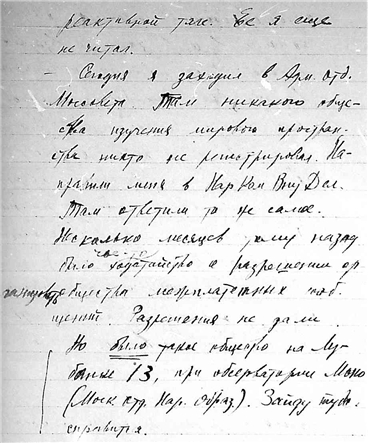 реактивной тяге. Ее я еще
не читал.
– Сегодня я заходил в Адм. отд.
Моссовета. Там никакого обще-
ства изучения мирового простран-
ства никто не регистрировал. На-
правили меня в НарКом ВнуДел.
Там ответили то же самое.
Несколько месяцев тому назад
было ходатайство о разрешении ор
ганизовать общество межпланетных сооб-
щений. Разрешения не дали.
Но было такое общество на Лу-
бянке 13, при обсерватории Моно
(Моск. отд. Нар. образ.). Зайду туда
справиться.